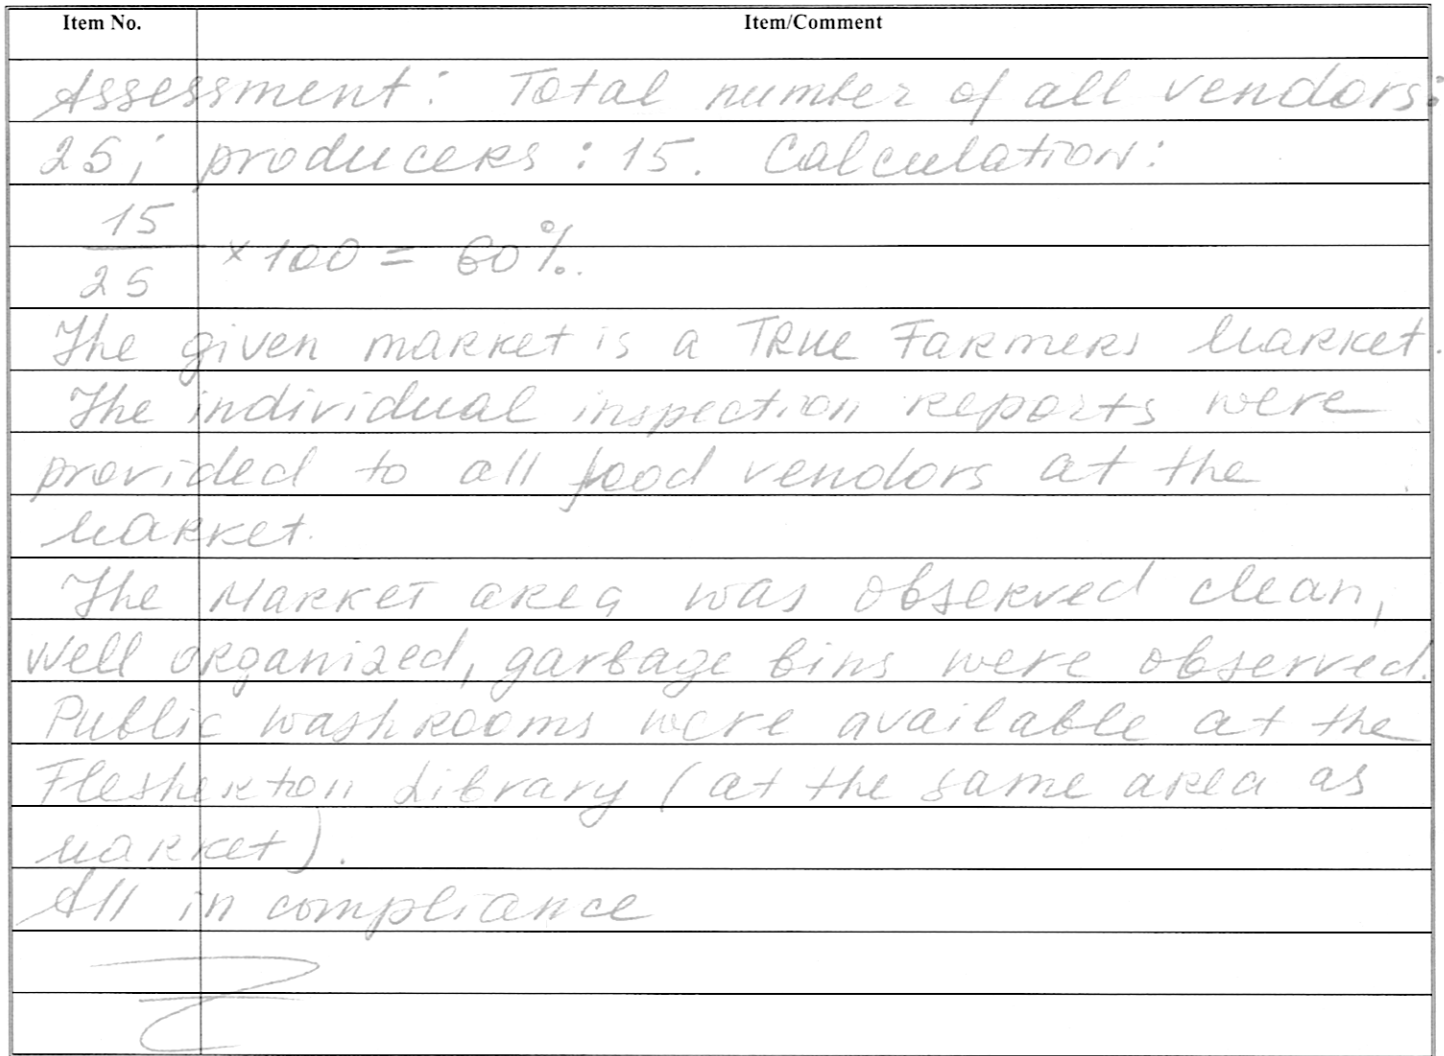 Item No. Item/Comment
Assessment: Total number of all vendors:
25; producers: 15. Calculation:
15
25
× 100 = 60%.
The given market is a TRUE Farmers Market.
The individual inspection reports were
provided to all food vendors at the
Market.
The Market area was observed clean,
well organized, garbage bins were observed.
Public washrooms were available at the
Flesherton Library (at the same area as
market).
All in compliance